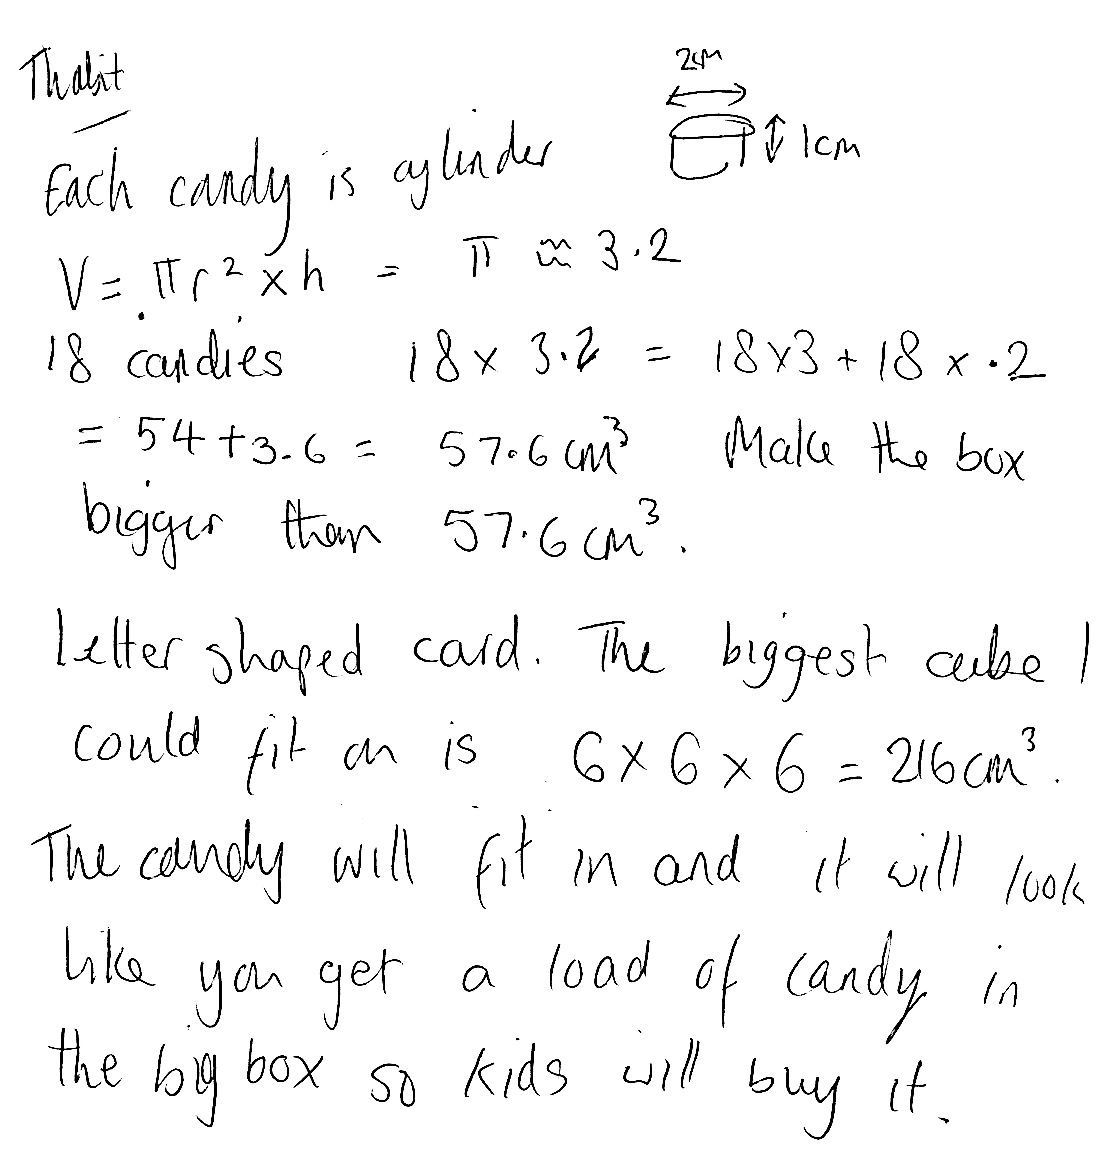 Thabit
2cm
1cm
Each candy is cylinder
V = πr² × h = π ≈ 3.2
18 candies 18 × 3.2 = 18×3 + 18 × .2
= 54 + 3.6 = 57.6 cm³ Make the box
bigger than 57.6 cm³.
Letter shaped card. The biggest cube I
could fit on is 6 × 6 × 6 = 216 cm³.
The candy will fit in and it will look
like you get a load of candy in
the big box so kids will buy it.